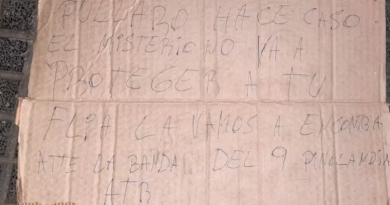 PULLARO HACE CASO
EL MISTERIO NO VA A
PROTEGER A TU
FLIA LA VAMOS A
ATTE LA BANDA DEL 9
ATB